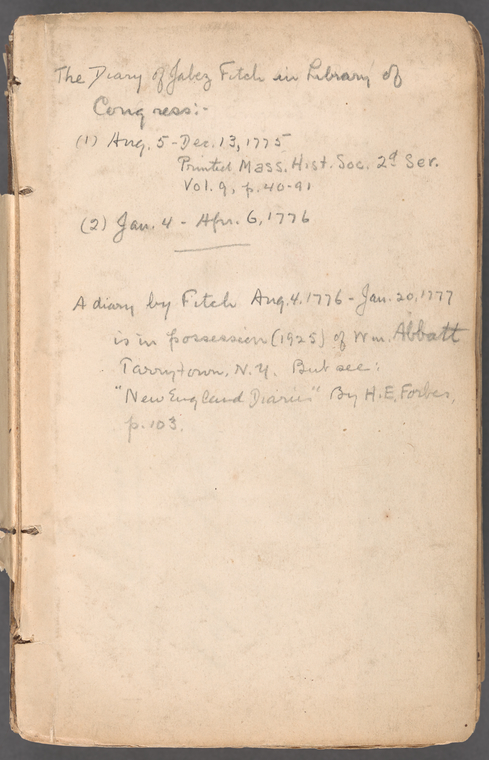 The Diary of Jabez Fitch in Library of
Congress:-
(1) Aug. 5 - Dec. 13, 1775
Printed Mass. Hist. Soc. 2d Ser.
Vol. 9, p. 40-91
(2) Jan. 4 - Apr. 6, 1776
A diary by Fitch Aug. 4. 1776 - Jan. 20, 1777
is in possession (1925) of Wm. Abbatt
Tarrytown, N.Y. But see:
"New England Diaries" By H.E. Forbes,
p. 103.